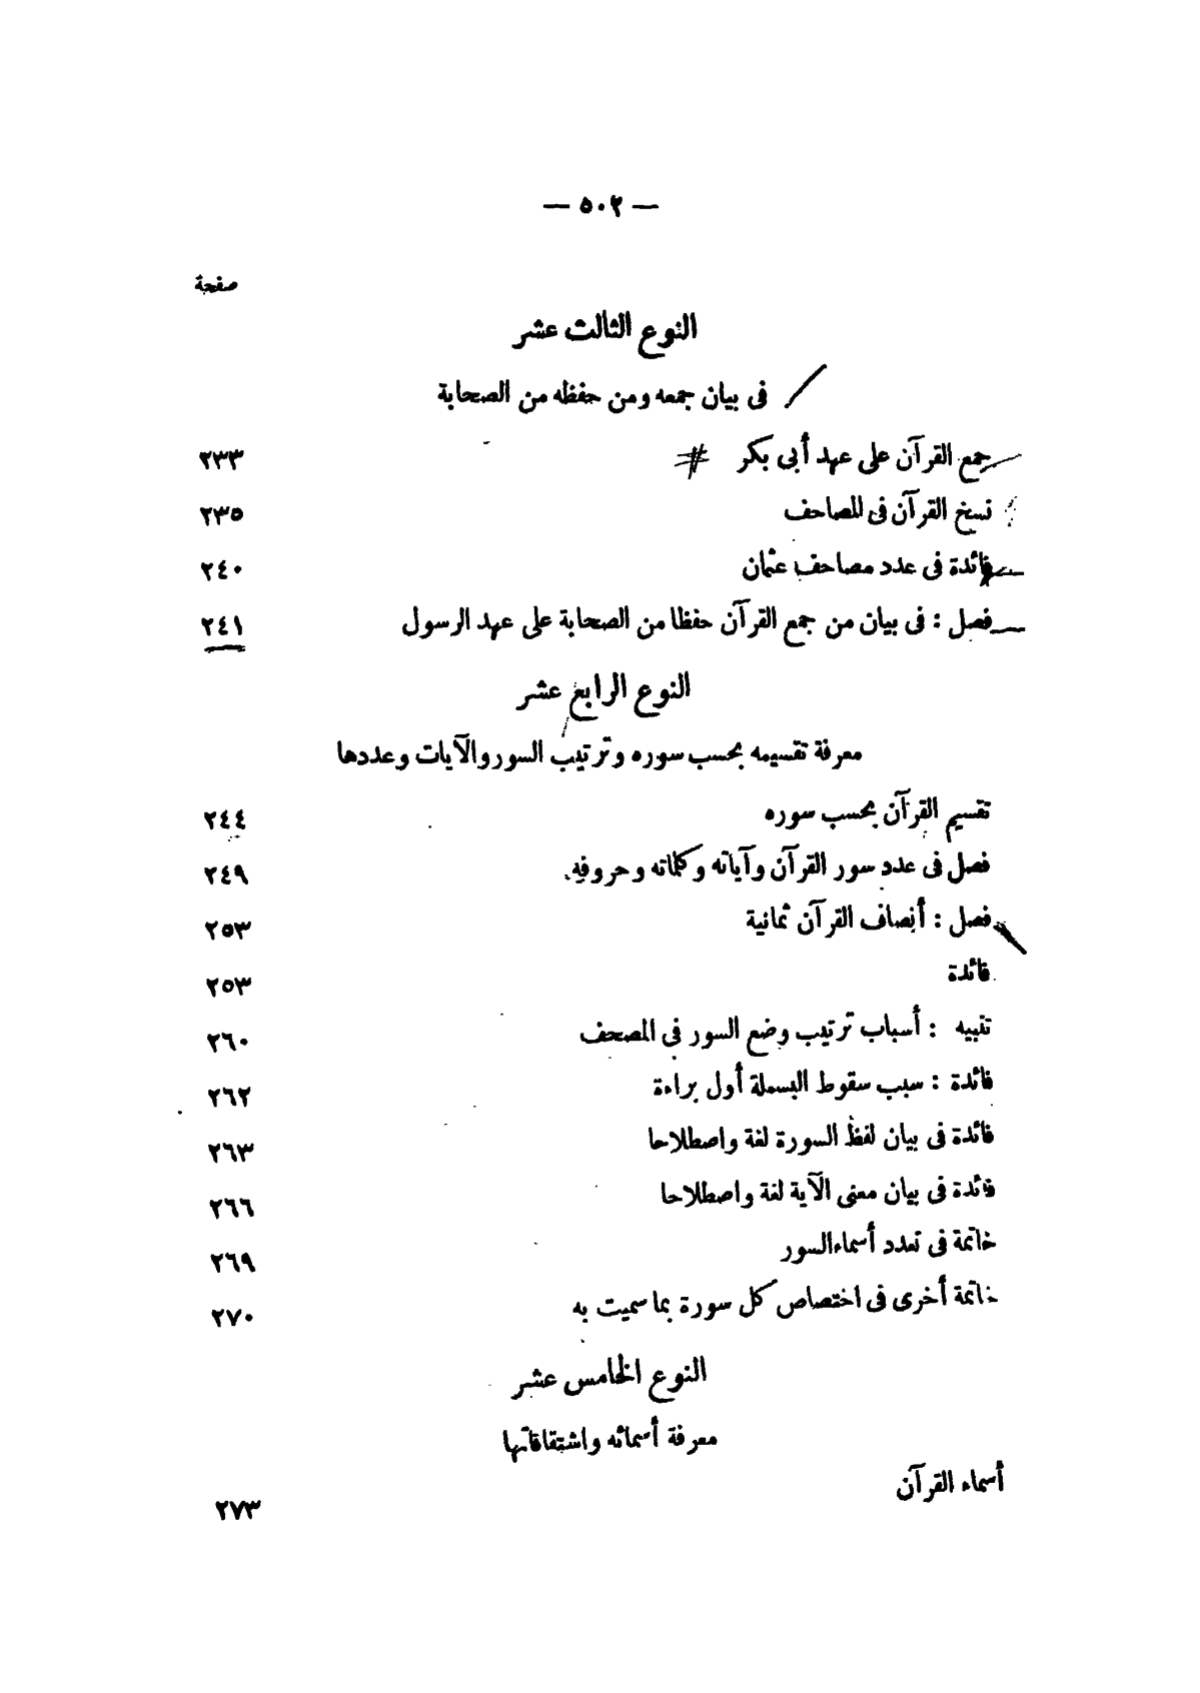 — ٥٠٢ —
صفحة
النوع الثالث عشر
فى بيان جمعه ومن حفظه من الصحابة
جمع القرآن على عهد أبى بكر ٢٣٣
نسخ القرآن فى المصاحف ٢٣٥
فائدة فى عدد مصاحف عثمان ٢٤٠
فصل : فى بيان من جمع القرآن حفظا من الصحابة على عهد الرسول ٢٤١
النوع الرابع عشر
معرفة تقسيمه بحسب سوره وترتيب السور والآيات وعددها
تقسيم القرآن بحسب سوره ٢٤٤
فصل فى عدد سور القرآن وآياته وكلماته وحروفه ٢٤٩
فصل : أنصاف القرآن ثمانية ٢٥٣
فائدة ٢٥٣
تنبيه : أسباب ترتيب وضع السور فى المصحف ٢٦٠
فائدة : سبب سقوط البسملة أول براءة ٢٦٢
فائدة فى بيان لفظ السورة لغة واصطلاحا ٢٦٣
فائدة فى بيان معنى الآية لغة واصطلاحا ٢٦٦
خاتمة فى تعدد أسماء السور ٢٦٩
خاتمة أخرى فى اختصاص كل سورة بما سميت به ٢٧٠
النوع الخامس عشر
معرفة أسمائه واشتقاقاتها
أسماء القرآن ٢٧٣